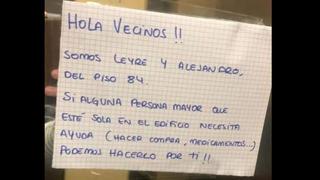 HOLA VECINOS !!
SOMOS LEYRE Y ALEJANDRO,
DEL PISO 84.
SI ALGUNA PERSONA MAYOR QUE
ESTÉ SOLA EN EL EDIFICIO NECESITA
AYUDA (HACER COMPRA, MEDICAMENTOS...)
PODEMOS HACERLO POR TÍ !!